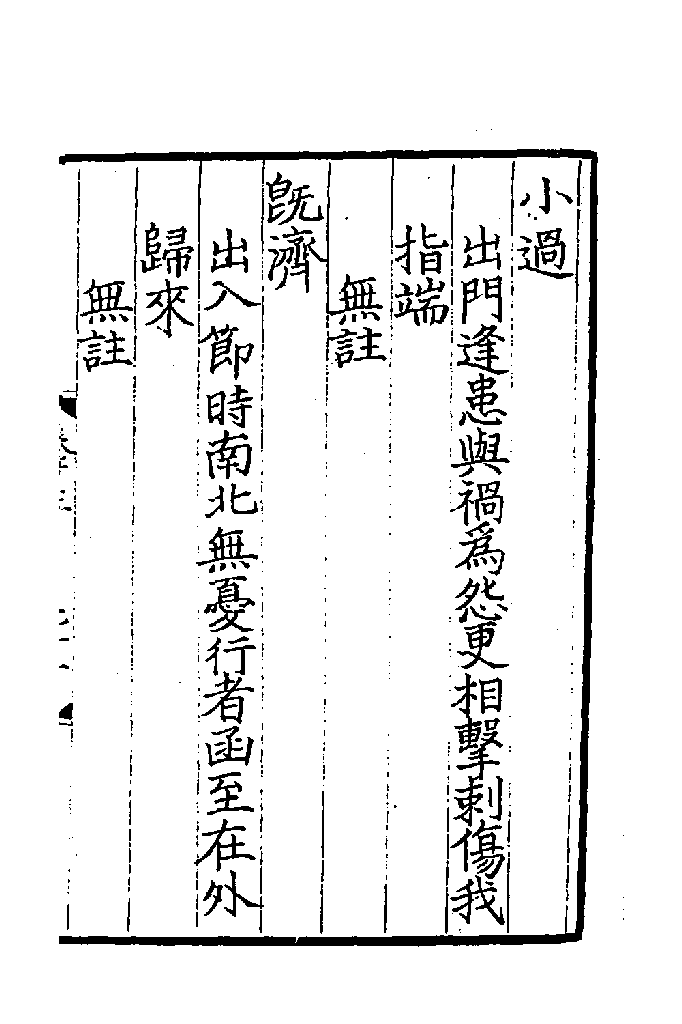 小過
出門逢患與禍為怨更相擊刺傷我
指端
無註
旣濟
出入節時南北無憂行者函至在外
歸來
無註